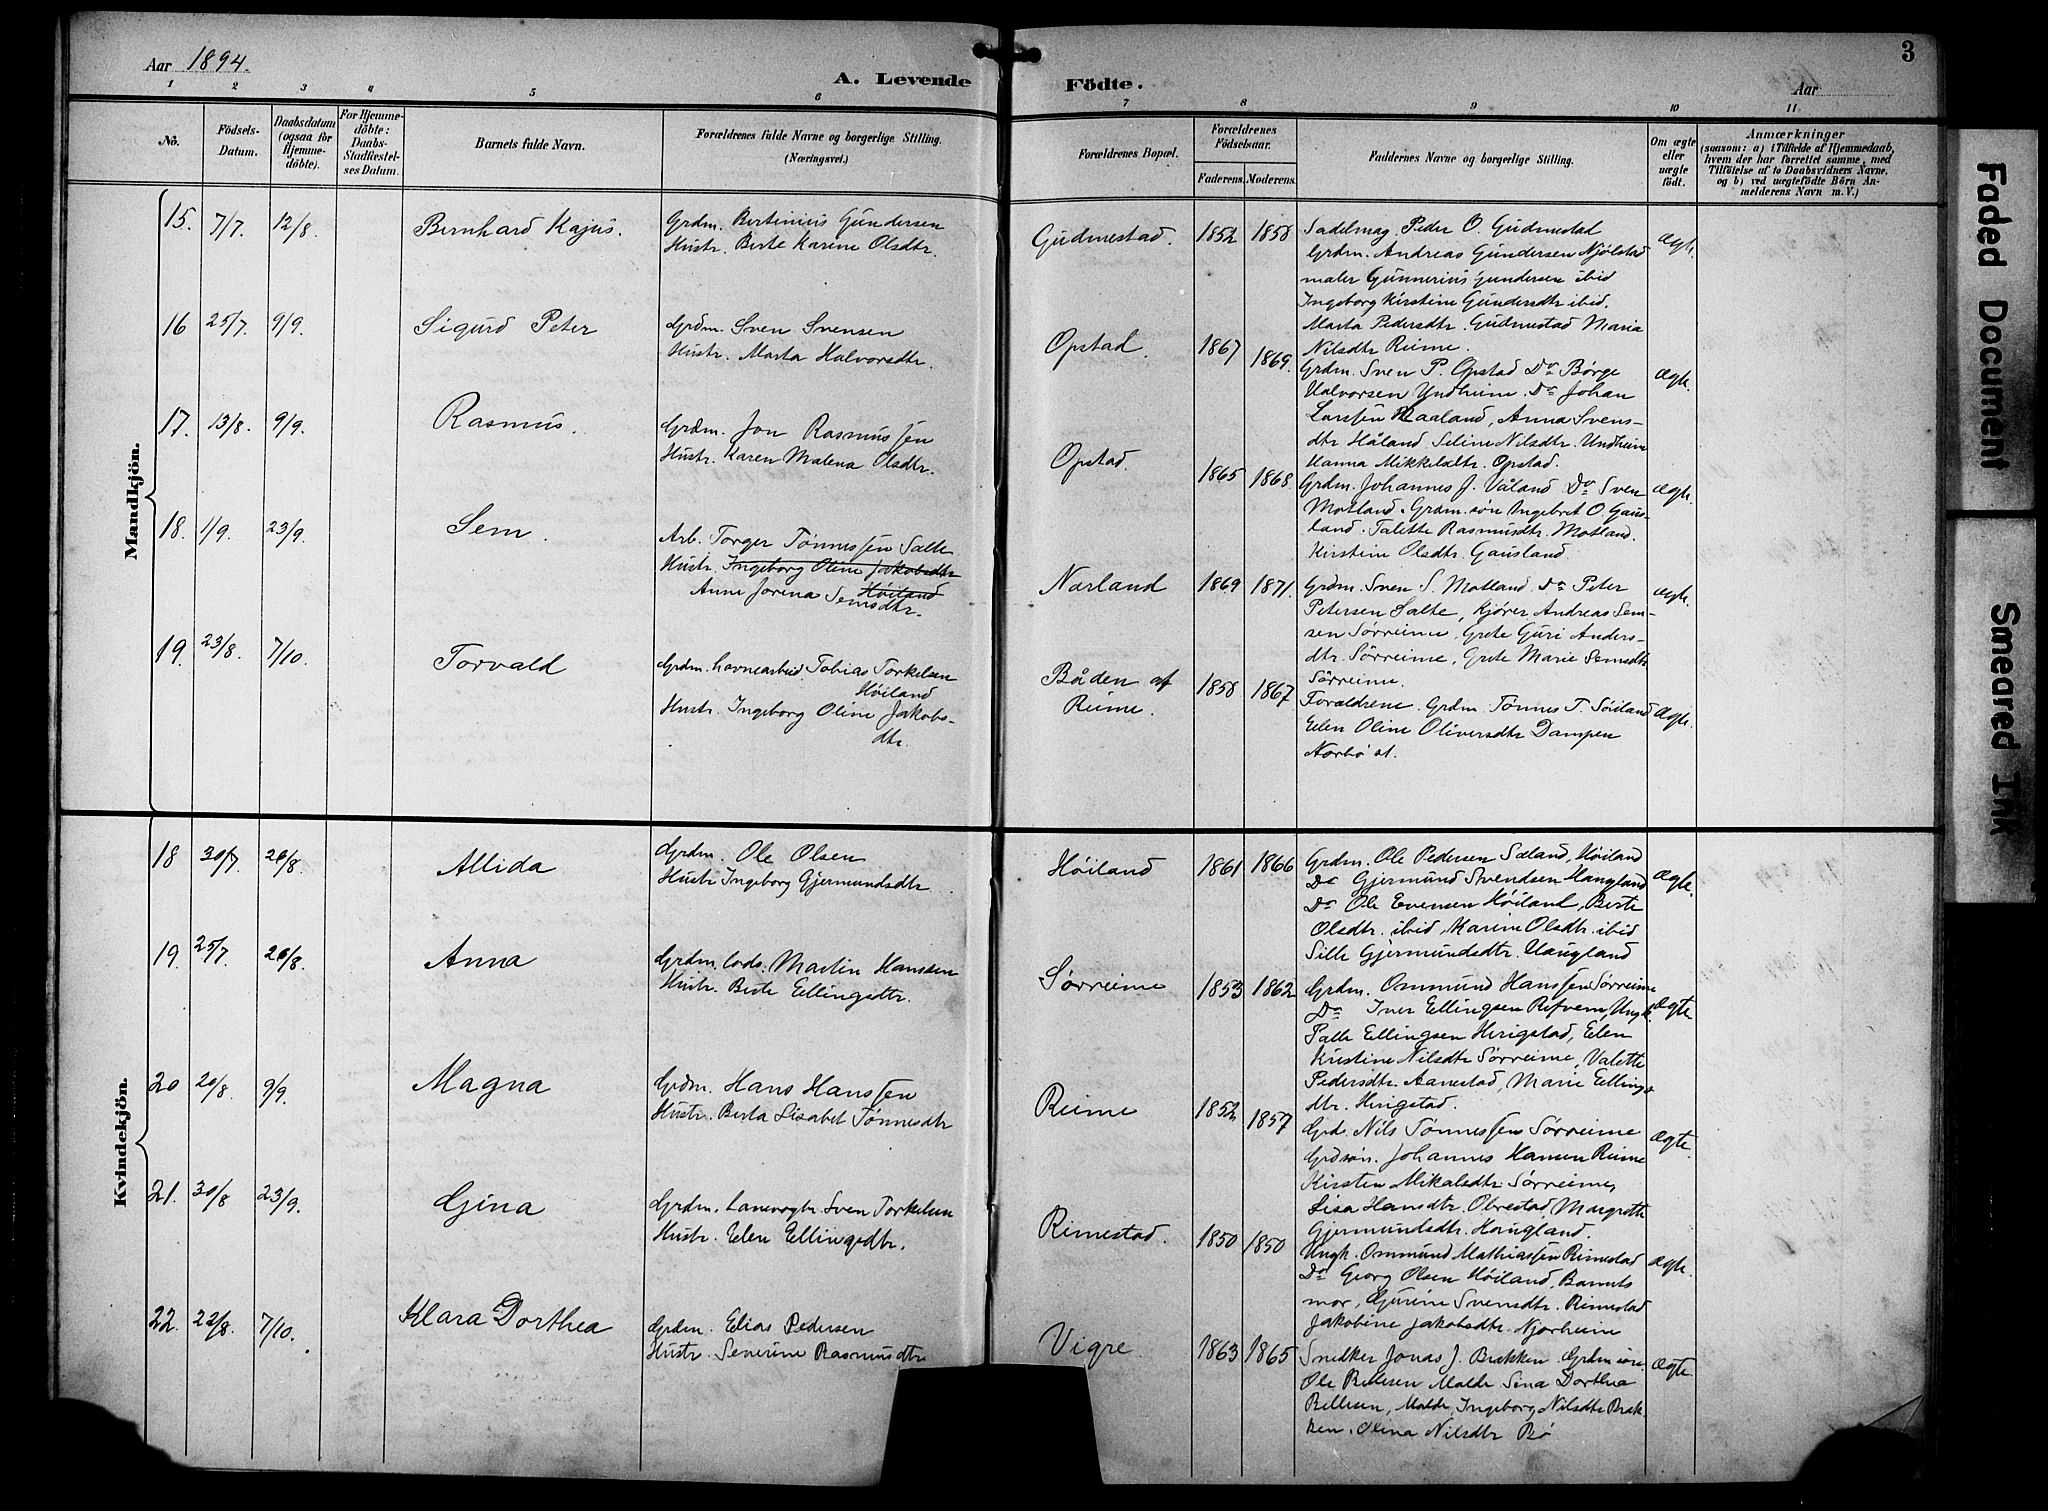 Aar 1894.
A. Levende
Födte.
Aar
3
1 2 3 4 5 6 7 8 9 10 11
No.
Födsels-
Datum.
Daabsdatum
(ogsaa for
Hjemme-
döbte).
For Hjemme-
döbte:
Daabs-
Stadfæstel-
ses Datum.
Barnets fulde Navn.
Forældrenes fulde Navne og borgerlige Stilling.
(Næringsvei.)
Forældrenes Bopæl.
Forældrenes
Födselsaar.
Faderens. Moderens.
Faddernes Navne og borgerlige Stilling.
Om ægte
eller
uægte
födt.
Anmærkninger
(saasom: a) i Tilfælde af Hjemmedaab,
hvem der har forrettet samme, med
Tilföielse af to Daabsvidners Navne.
og b) ved uægtefödte Börn An-
melderens Navn m. V.)
Mandkjön.
15. 7/7. 12/8. Bernhard Kajus.
Grdm. Bertinius Gundersen
Hustr. Berte Karine Olsdtr.
Gudmestad. 1852 1858
Sadelmag. Peder O. Gudmestad
Grdm. Andreas Gundersen Njølstad
maler Gunnerius Gundersen ibid
Ingeborg Kirstine Gundersdtr ibid.
Marta Pedersdtr. Gudmestad Maria
Nilsdtr Reime.
ægte.
16 25/7. 9/9. Sigurd Peter
Grdm. Sven Svensen
Hustr. Marta Halvorsdtr.
Opstad. 1867 1869.
Grdm. Sven P. Opstad Do Børge
Halvorsen Undheim. Do Johan
Larssen Haaland, Anna Svens-
dtr Håland Seline Nilsdtr. Undheim
Hanna Mikkelsdtr. Opstad.
ægte.
17. 13/8. 9/9. Rasmus.
Grdm. Jon Rasmussen
Hustr. Karen Malena Olsdtr.
Opstad. 1865 1868.
Grdm. Johannes J. Våland Do Sven
Motland. Grdm. søn Ingebret O. Gaus-
land. Talette Rasmusdtr. Motland.
Kirstine Olsdtr. Gausland.
ægte.
18. 1/9. 23/9. Sem.
Arb. Torger Tønnessen Salte
Hustr. Ingeborg Oline Jakobsdtr
Høiland
Anne Jorina Semsdtr.
Narland 1869 1871.
Grdm. Sven S. Motland. Do Peter
Petersen Salte, Kjører Andreas Sem-
sen Sørreime, Grete Guri Anders-
dtr. Sørreime, Grete Marie Semsdtr
Sørreime.
ægte.
19. 23/8. 7/10. Torvald
Grdm. havnearbeid. Tobias Torkelsen
Høiland
Hustr. Ingeborg Oline Jakobs-
dtr.
Båden af
Reime. 1858 1867
Forældrene. Grdm. Tønnes T. Høiland
Elen Oline Oliversdtr Dampen
Nærbø st.
ægte.
Kvindekjön.
18 30/7 26/8. Allida
Grdm. Ole Olsen
Hustr Ingeborg Gjermundsdtr
Høiland 1861 1866
Grdm. Ole Pedersen Sæland, Høiland
Do Gjermund Svendsen Haugland
Do Ole Evensen Høiland, Berte
Olsdtr. ibid, Karine Olsdtr. ibid
Sille Gjermundsdtr. Haugland
ægte.
19. 25/7. 26/8. Anna
Grdm. lods. Martin Hanssen
Hustr. Berte Ellingsdtr.
Sørreime 1853 1862
Grdm. Ommund Hanssen Sørreime
Do Iver Ellingsen Refvem, Ungk.
Palle Ellingsen Herigstad, Elen
Kristine Nilsdtr Sørreime, Valette
Pedersdtr. Aanestad, Marie Ellings-
dtr. Herigstad.
ægte
20 20/8. 9/9. Magna
Grdm. Hans Hanssen
Hustr. Berta Lisabet Tønnesdtr
Reime 1852 1857
Grd. Nils Tønnessen Sørreime
Grdsøn. Johannes Hansen Reime
Kirsten Mikalsdtr. Sørreime,
Lisa Hansdtr. Obrestad, Margrethe
Gjermundsdtr. Haugland.
ægte.
21. 30/8 23/9. Gina
Grdm. Sven Torkelsen
Hustr. Elen Ellingsdtr.
Rimestad. 1850 1850
Ungk. Ommund Mathiassen Rimestad
Do Georg Olsen Høiland, Barnets
mor, Gurine Svensdtr. Rimestad
Jakobine Jakobsdtr. Njærheim
ægte.
22. 22/8. 7/10. Klara Dorthea
Grdm. Elias Pedersen
Hustr. Severine Rasmusdtr
Vigre. 1863 1865
Snedker Jonas J. Brække. Grdm søn
Ole Bellesen Malde Sina Dorthea
Bellesen, Malde, Ingeborg Nilsdtr Bræk-
ken. Olina Nilsdtr Bø
ægte.
Faded Document
Smeared Ink